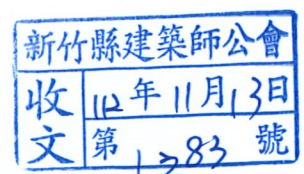 新竹縣建築師公會
收文
112年11月13日
第1383號